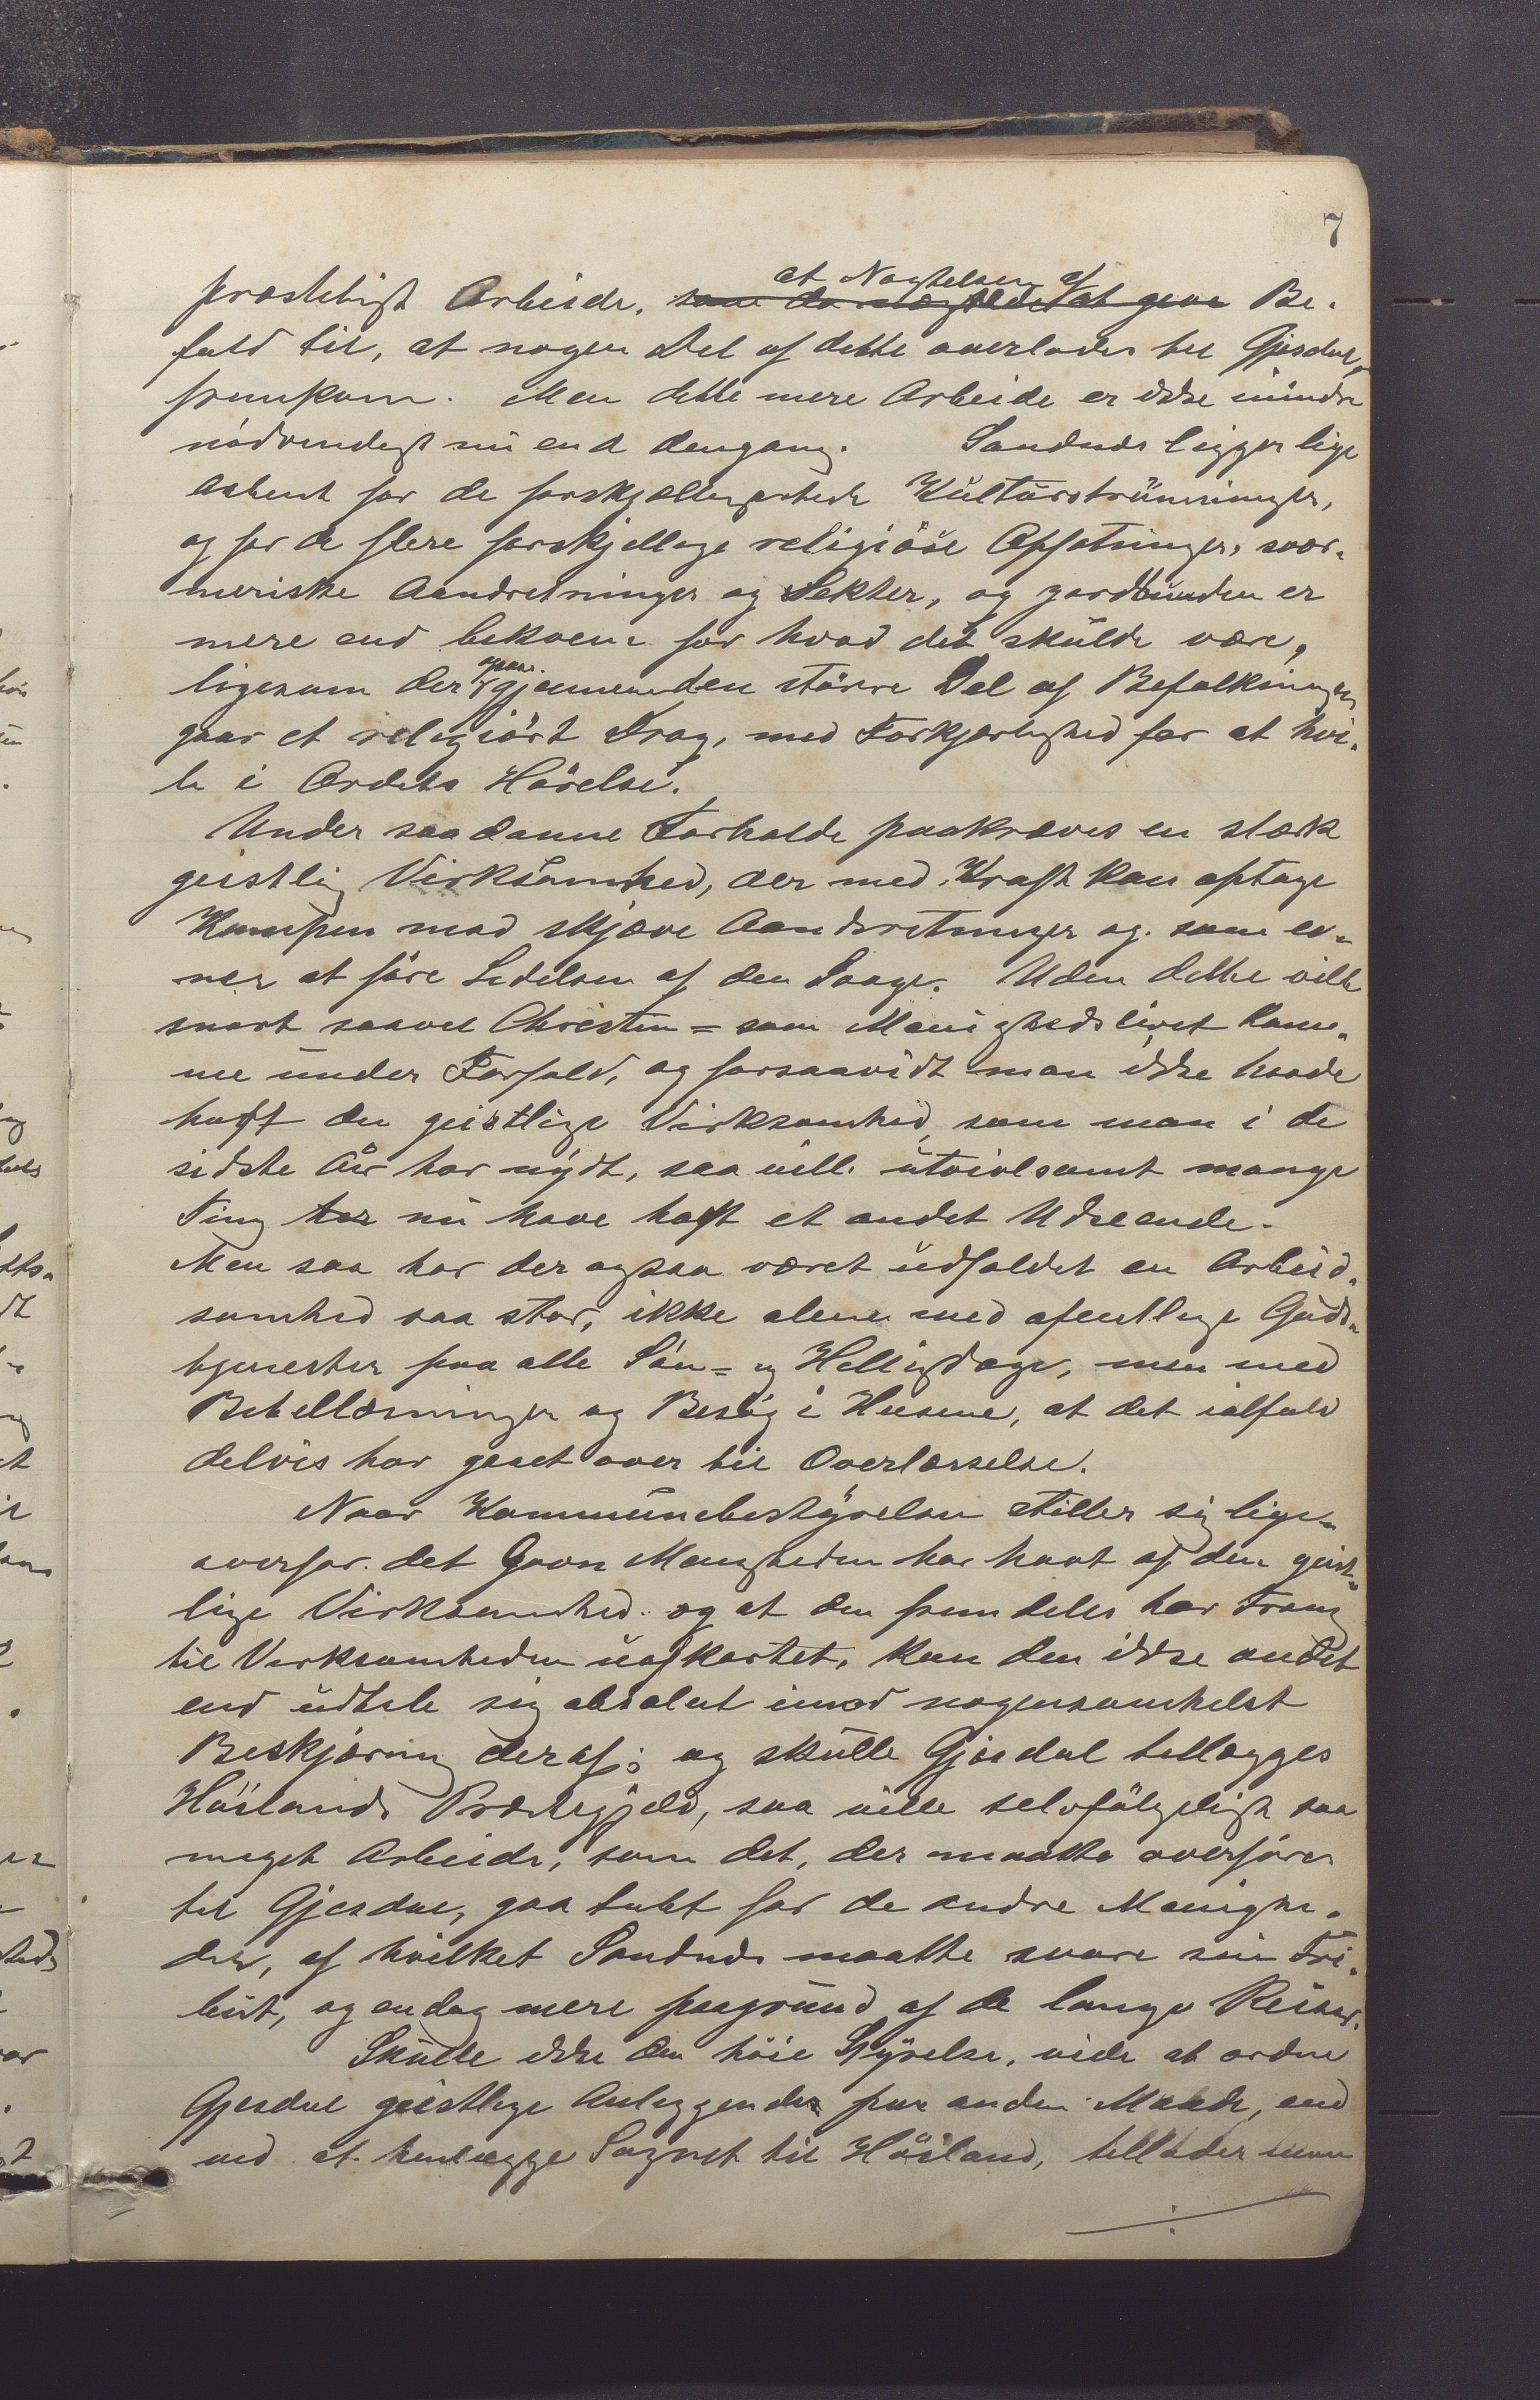 7
at Nægtelsen af
præsteligt Arbeide, som da nægtedes at give Be-
fald til, at nogen Del af dette overlodes til Gjesdal,
fremkom. Men dette mere Arbeide er ikke mindre
nødvendigt nu end dengang. Sandnes ligger lige
aabent for de forskjelligartede Kulturstrømninger,
og for de flere forskjellige religiöse Opfatninger, svær-
meriske Aandretninger og Sekter, og jordbunden er
mere end bekvem for hvad det skulde være,
ogsaa
ligesom der gjennem den större Del af Befolkningen
gaar et religiört Drag, med Forkjærlighed for at hvi-
le i Ordets Hörelse.
Under saadanne Forholde paakræves en stærk
geistlig Virksomhed, der med Kraft kan optage
Kampen mod skjæve Aandsretninger og som ev-
ner at före Ledelsen af den Sange. Uden dette vilde
snart saavel Christen- som Menighedslivet kom-
me under Forfald, og forsaavidt man ikke havde
havt den geistlige Virksomhed, som man i de
sidste Aar har nydt, saa vilde utvivlsomt mange
Ting har nu have havt et andet Udseende.
Men saa har der ogsaa været udfoldet en Arbeid-
somhed saa stor, ikke alene med ofentlige Guds-
tjenester paa alle Sön- og Helligdage, men med
Bibellæsninger og Besög i Husene, at det ialfald
delvis har gaaet over til Overlæsselse.
Naar Kommunebestyrelsen stiller sig lige-
overfor det Gavn Menigheden har havt af den geist-
lige Virksomhed og at den fremdeles har Trang
til Virksomheden uafkortet, kan den ikke andet
end udtale sig absolut imod nogensomhelst
Beskjæring deraf; og skulle Gjesdal tillægges
Höilands Præstegjeld, saa ville selvfölgeligt saa
meget Arbeide, som det, der maatte overföres
til Gjesdal, gaa tabt for de andre Menighe-
der, af hvilket Sandnes maatte svare sin Tri-
but, og endog mere paagrund af de lange Reiser.
Skulle ikke den höie Styrelse, vide at ordne
Gjesdal geistlige Anliggender paa anden Maade, end
ved at henlægge Sognet til Höiland, tillader man